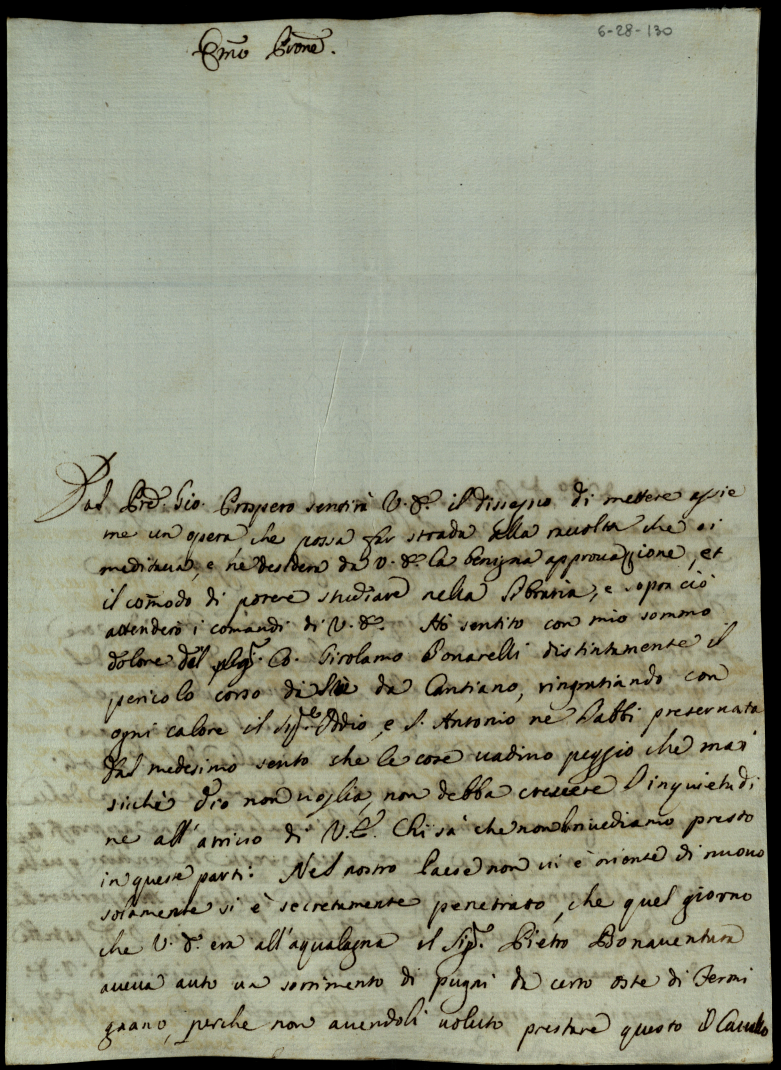 6-28-130
Emo Prone.
Dal Prd. Gio. Prospero sentirà V. E. il dissegno di mettere assie
me un opera che possa far strada della raccolta che si
meditava, e ne desidera da V. E. la benigna approvazione, et
il comodo di potere studiare nella Libraria, e sopra ciò
attenderò i comandi di V. E. Ho sentito con mio sommo
dolore dal Sig. Co. Girolamo Bonarelli distintamente il
pericolo corso da Cantiano, ringratiando con
ogni calore il Sig.re Iddio, e S. Antonio ne l'abbi preservata
Dal medesimo sento che le cose vadino peggio che mai
sichè Dio non voglia, non debba crescere l'inquietudi
ne all'arrivo di V. E. Chi sà che non la rivediamo presto
in queste parti. Nel nostro Paese non vi è niente di nuovo
solamente si è secretamente penetrato, che quel giorno
che V. E. era all'aqualagna il Sig. Pietro Bonaventura
aveva auto un sorrimento di pugni da certo oste di Fermi
gnano, perche non avendoli voluto prestare questo il Cavallo